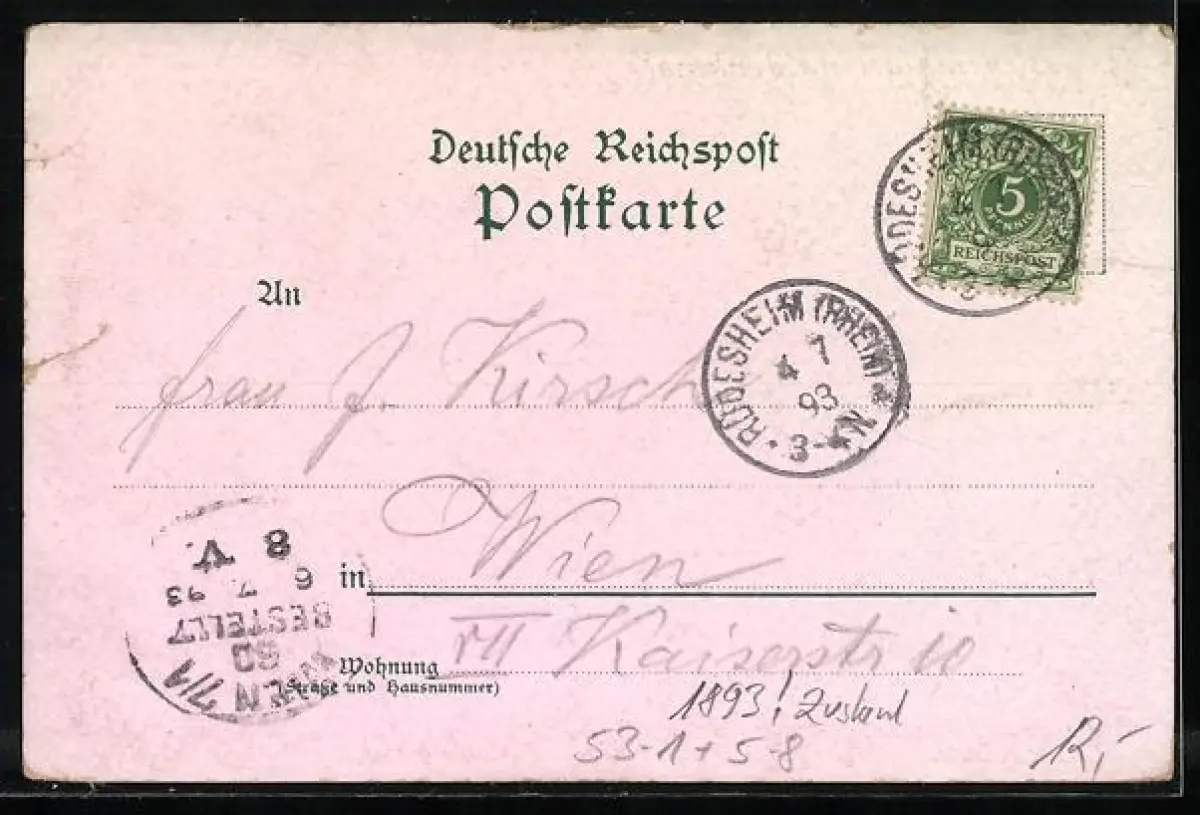 Deutsche Reichspost
Postkarte
5
REICHSPOST
RÜDESHEIM (RHEIN)
An
Frau J. Kirsch
RÜDESHEIM (RHEIN)
4 7
93
3-4N
in Wien
VII Kaiserstr 10
Wohnung
(Straße und Hausnummer)
WIEN 7/1
BESTELLT
6 7 93
8 V.
1893!
53-1+5-8